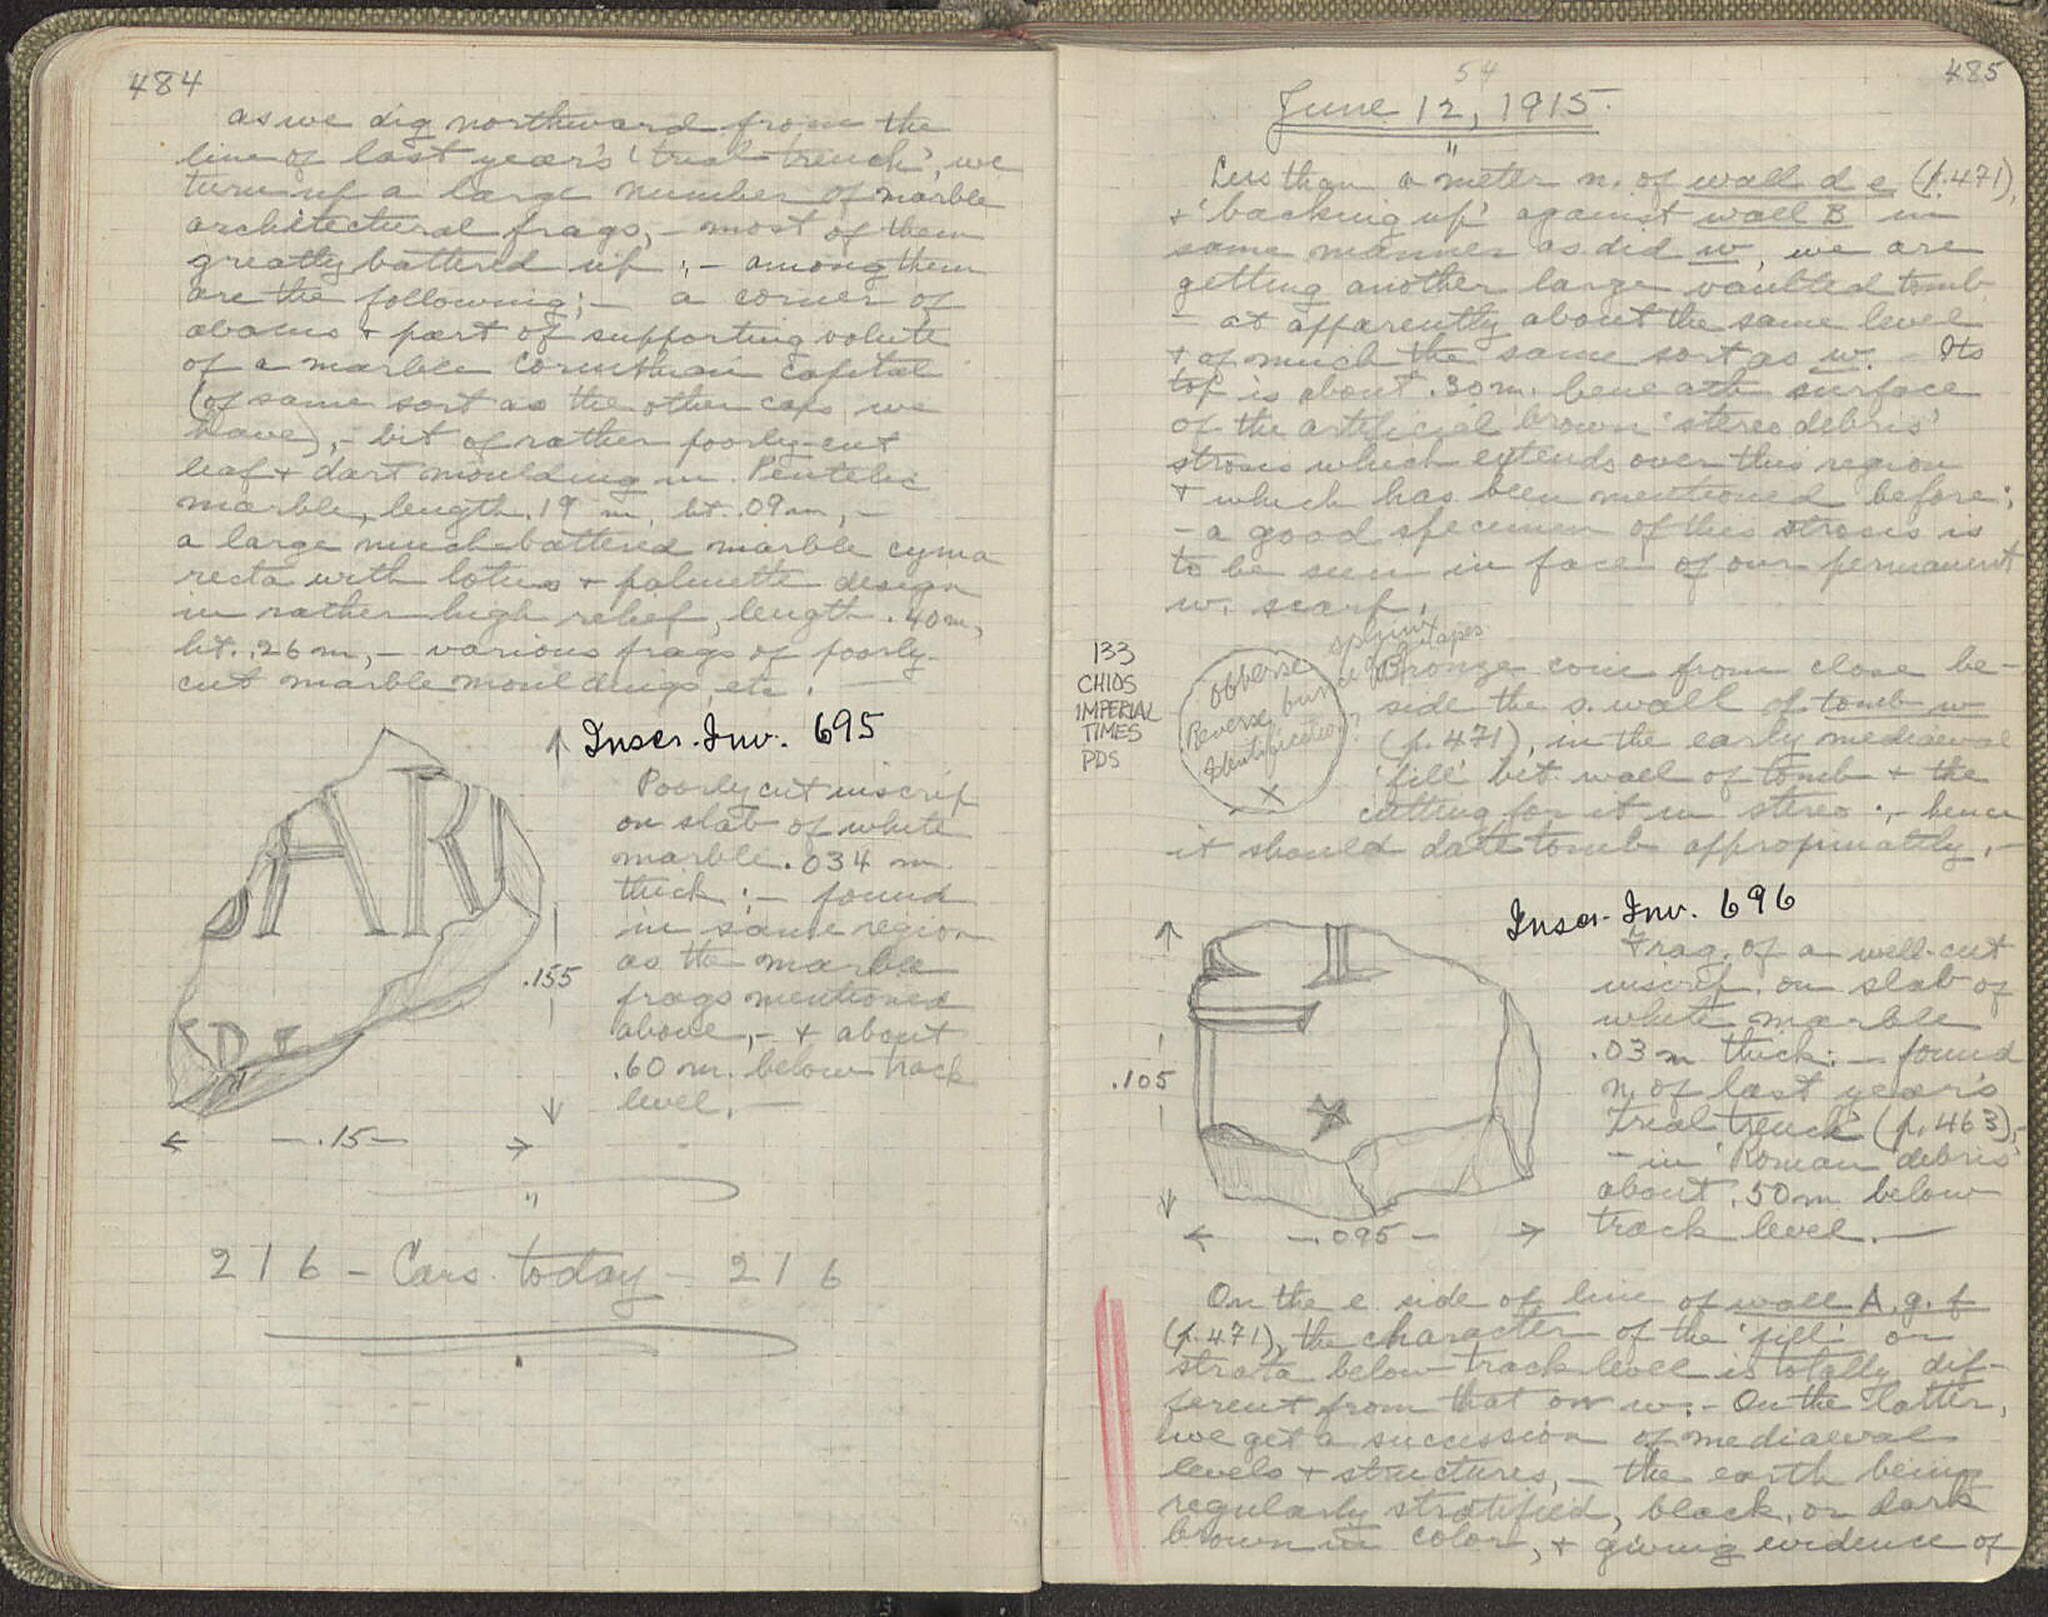 484
as we dig northward from the
line of last year's 'trial trench', we
turn up a large number of marble
architectural frags, – most of them
greatly battered up ; – among them
are the following ; – a corner of
abacus + part of supporting volute
of a marble Corinthian capital
(of same sort as the other caps we
have), – bit of rather poorly-cut
leaf + dart moulding in Pentelic
marble, length .19 m, ht. .09 m, –
a large much-battered marble cyma
recta with lotus + palmette design
in rather high relief, length .40 m,
ht. .26 m, – various frags of poorly-
cut marble mouldings, etc. –
Inscr. Inv. 695
Poorly cut inscrip
on slab of white
marble .034 m
thick ; – found
in same region
as the marble
frags mentioned
above, – + about
.60 m. below track
level. –
AR
D
.155
– .15 –
"
216 – Cars today – 216
54
485
June 12, 1915.
"
Less than a meter n. of wall d e (p. 471),
+ 'backing up' against wall B in
same manner as did w, we are
getting another large vaulted tomb
– at apparently about the same level
+ of much the same sort as w. – Its
top is about .30 m. beneath surface
of the artificial brown 'stereo debris'
strosis which extends over this region
+ which has been mentioned before ;
– a good specimen of this strosis is
to be seen in face of our permanent
w. scarp.
133
CHIOS
IMPERIAL
TIMES
PDS
Obverse sphinx
Reverse bunch of grapes
Identification?
X
Bronze coin from close be-
side the s. wall of tomb w
(p. 471), in the early mediaeval
'fill' bet. wall of tomb + the
cutting for it in stereo ; – hence
it should date tomb approximately. –
Inscr. Inv. 696
Frag. of a well-cut
inscrip. on slab of
white marble
.03 m thick ; – found
n. of last year's
'trial trench' (p. 463), –
– in 'Roman debris'
about .50 m below
track level. –
.105
– .095 –
On the e. side of line of wall A. g. f
(p. 471), the character of the 'fill' or
strata below track level is totally dif-
ferent from that on w. – On the latter,
we get a succession of mediaeval
levels + structures, – the earth being
regularly stratified, black, or dark
brown in color, + giving evidence of